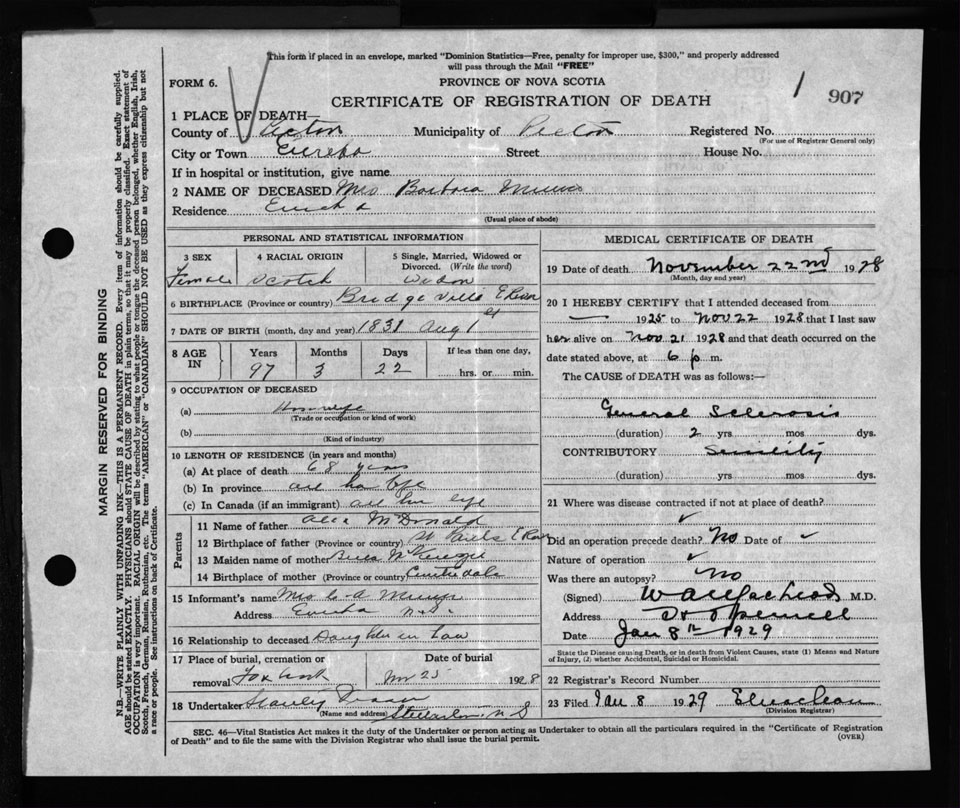 This form if placed in an envelope, marked "Dominion Statistics—Free, penalty for improper use, $300," and properly addressed
will pass through the Mail "FREE"
FORM 6.
PROVINCE OF NOVA SCOTIA
CERTIFICATE OF REGISTRATION OF DEATH
1 907
1 PLACE OF DEATH
County of Pictou Municipality of Pictou Registered No.
(For use of Registrar General only)
City or Town Eureka Street House No.
If in hospital or institution, give name
2 NAME OF DECEASED Mrs Barbara Munro
Residence Eureka
(Usual place of abode)
PERSONAL AND STATISTICAL INFORMATION
3 SEX 4 RACIAL ORIGIN 5 Single, Married, Widowed or
Divorced. (Write the word)
Female Scotch Widow
6 BIRTHPLACE (Province or country) Bridgeville E River
7 DATE OF BIRTH (month, day and year) 1831 Aug 1st
8 AGE IN Years Months Days If less than one day,
97 3 22 hrs. or min.
9 OCCUPATION OF DECEASED
(a) Housewife
(Trade or occupation or kind of work)
(b)
(Kind of industry)
10 LENGTH OF RESIDENCE (in years and months)
(a) At place of death 68 years
(b) In province all her life
(c) In Canada (if an immigrant) all her life
Parents
11 Name of father Alex McDonald
12 Birthplace of father (Province or country) St Pauls E River
13 Maiden name of mother McKenzie
14 Birthplace of mother (Province or country)
15 Informant's name Mrs Munro
Address Eureka N.S.
16 Relationship to deceased Daughter in law
17 Place of burial, cremation or Date of burial
removal Nov 25 1928
18 Undertaker Stanley
(Name and address) Stellarton N S
MEDICAL CERTIFICATE OF DEATH
19 Date of death November 22nd 1928
(Month, day and year)
20 I HEREBY CERTIFY that I attended deceased from
— 1925 to Nov 22 1928 that I last saw
her alive on Nov 21 1928 and that death occurred on the
date stated above, at 6 p m.
The CAUSE of DEATH was as follows:—
General Sclerosis
(duration) 2 yrs mos dys.
CONTRIBUTORY Senility
(duration) yrs mos dys.
21 Where was disease contracted if not at place of death?
✓
Did an operation precede death? No Date of ✓
Nature of operation ✓
Was there an autopsy? No
(Signed) M.D.
Address
Date Jan 8th 1929
State the Disease causing Death, or in death from Violent Causes, state (1) Means and Nature
of Injury, (2) whether Accidental, Suicidal or Homicidal.
22 Registrar's Record Number
23 Filed Jan 8 1929
(Division Registrar)
SEC. 46—Vital Statistics Act makes it the duty of the Undertaker or person acting as Undertaker to obtain all the particulars required in the "Certificate of Registration
of Death" and to file the same with the Division Registrar who shall issue the burial permit.
(OVER)
MARGIN RESERVED FOR BINDING
N.B.—WRITE PLAINLY WITH UNFADING INK—THIS IS A PERMANENT RECORD. Every item of information should be carefully supplied.
AGE should be stated EXACTLY. PHYSICIANS should STATE CAUSE OF DEATH in plain terms, so that it may be properly classified. Exact statement of
OCCUPATION is very important. RACIAL ORIGIN will be described by stating to what people or tongue the deceased person belonged, whether English, Irish,
Scotch, French, German, Russian, Ruthenian, etc. The terms "AMERICAN" or "CANADIAN" SHOULD NOT BE USED as they express citizenship but not
a race or people. See instructions on back of Certificate.